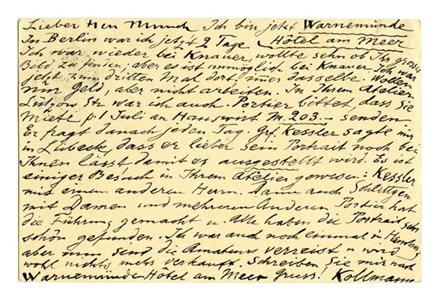 Lieber Herr Munch Ich bin jetzt Warnemünde
In Berlin war ich jetzt 2 Tage Hôtel am Meer
Ich war wieder bei Knauer, wollte sehn ob Ihr grosses
Bild zu finden, aber es ist unmöglich bei Knauer. Ich war
jetzt zum dritten Mal dort, immer dasselbe. Wollen
nur Geld, aber nicht arbeiten. In Ihrem Atelier
Lützow Str war ich auch. Portier bittet dass Sie
Miete p 1 Juli an Hauswirt M. 203.– senden
Er fragt danach jeden Tag. Grf. Kessler sagte mir
in Lübeck dass er lieber sein Portrait noch bei
Ihnen lässt damit es ausgestellt wird. Es ist
einiger Besuch in Ihrem Atelier gewesen: Kessler
mit einem anderen Herrn, dann auch Schlittgen
mit Damen und mehreren Anderen. Portier hat
die Führung gemacht u. Alle haben die Portraits sehr
schön gefunden. Ich war auch noch einmal in Hamburg
aber nun sind die Amateure verreist u wird
wohl nichts mehr verkauft. Schreiben Sie mir nach
Warnemünde Hôtel am Meer Gruss! Kollmann